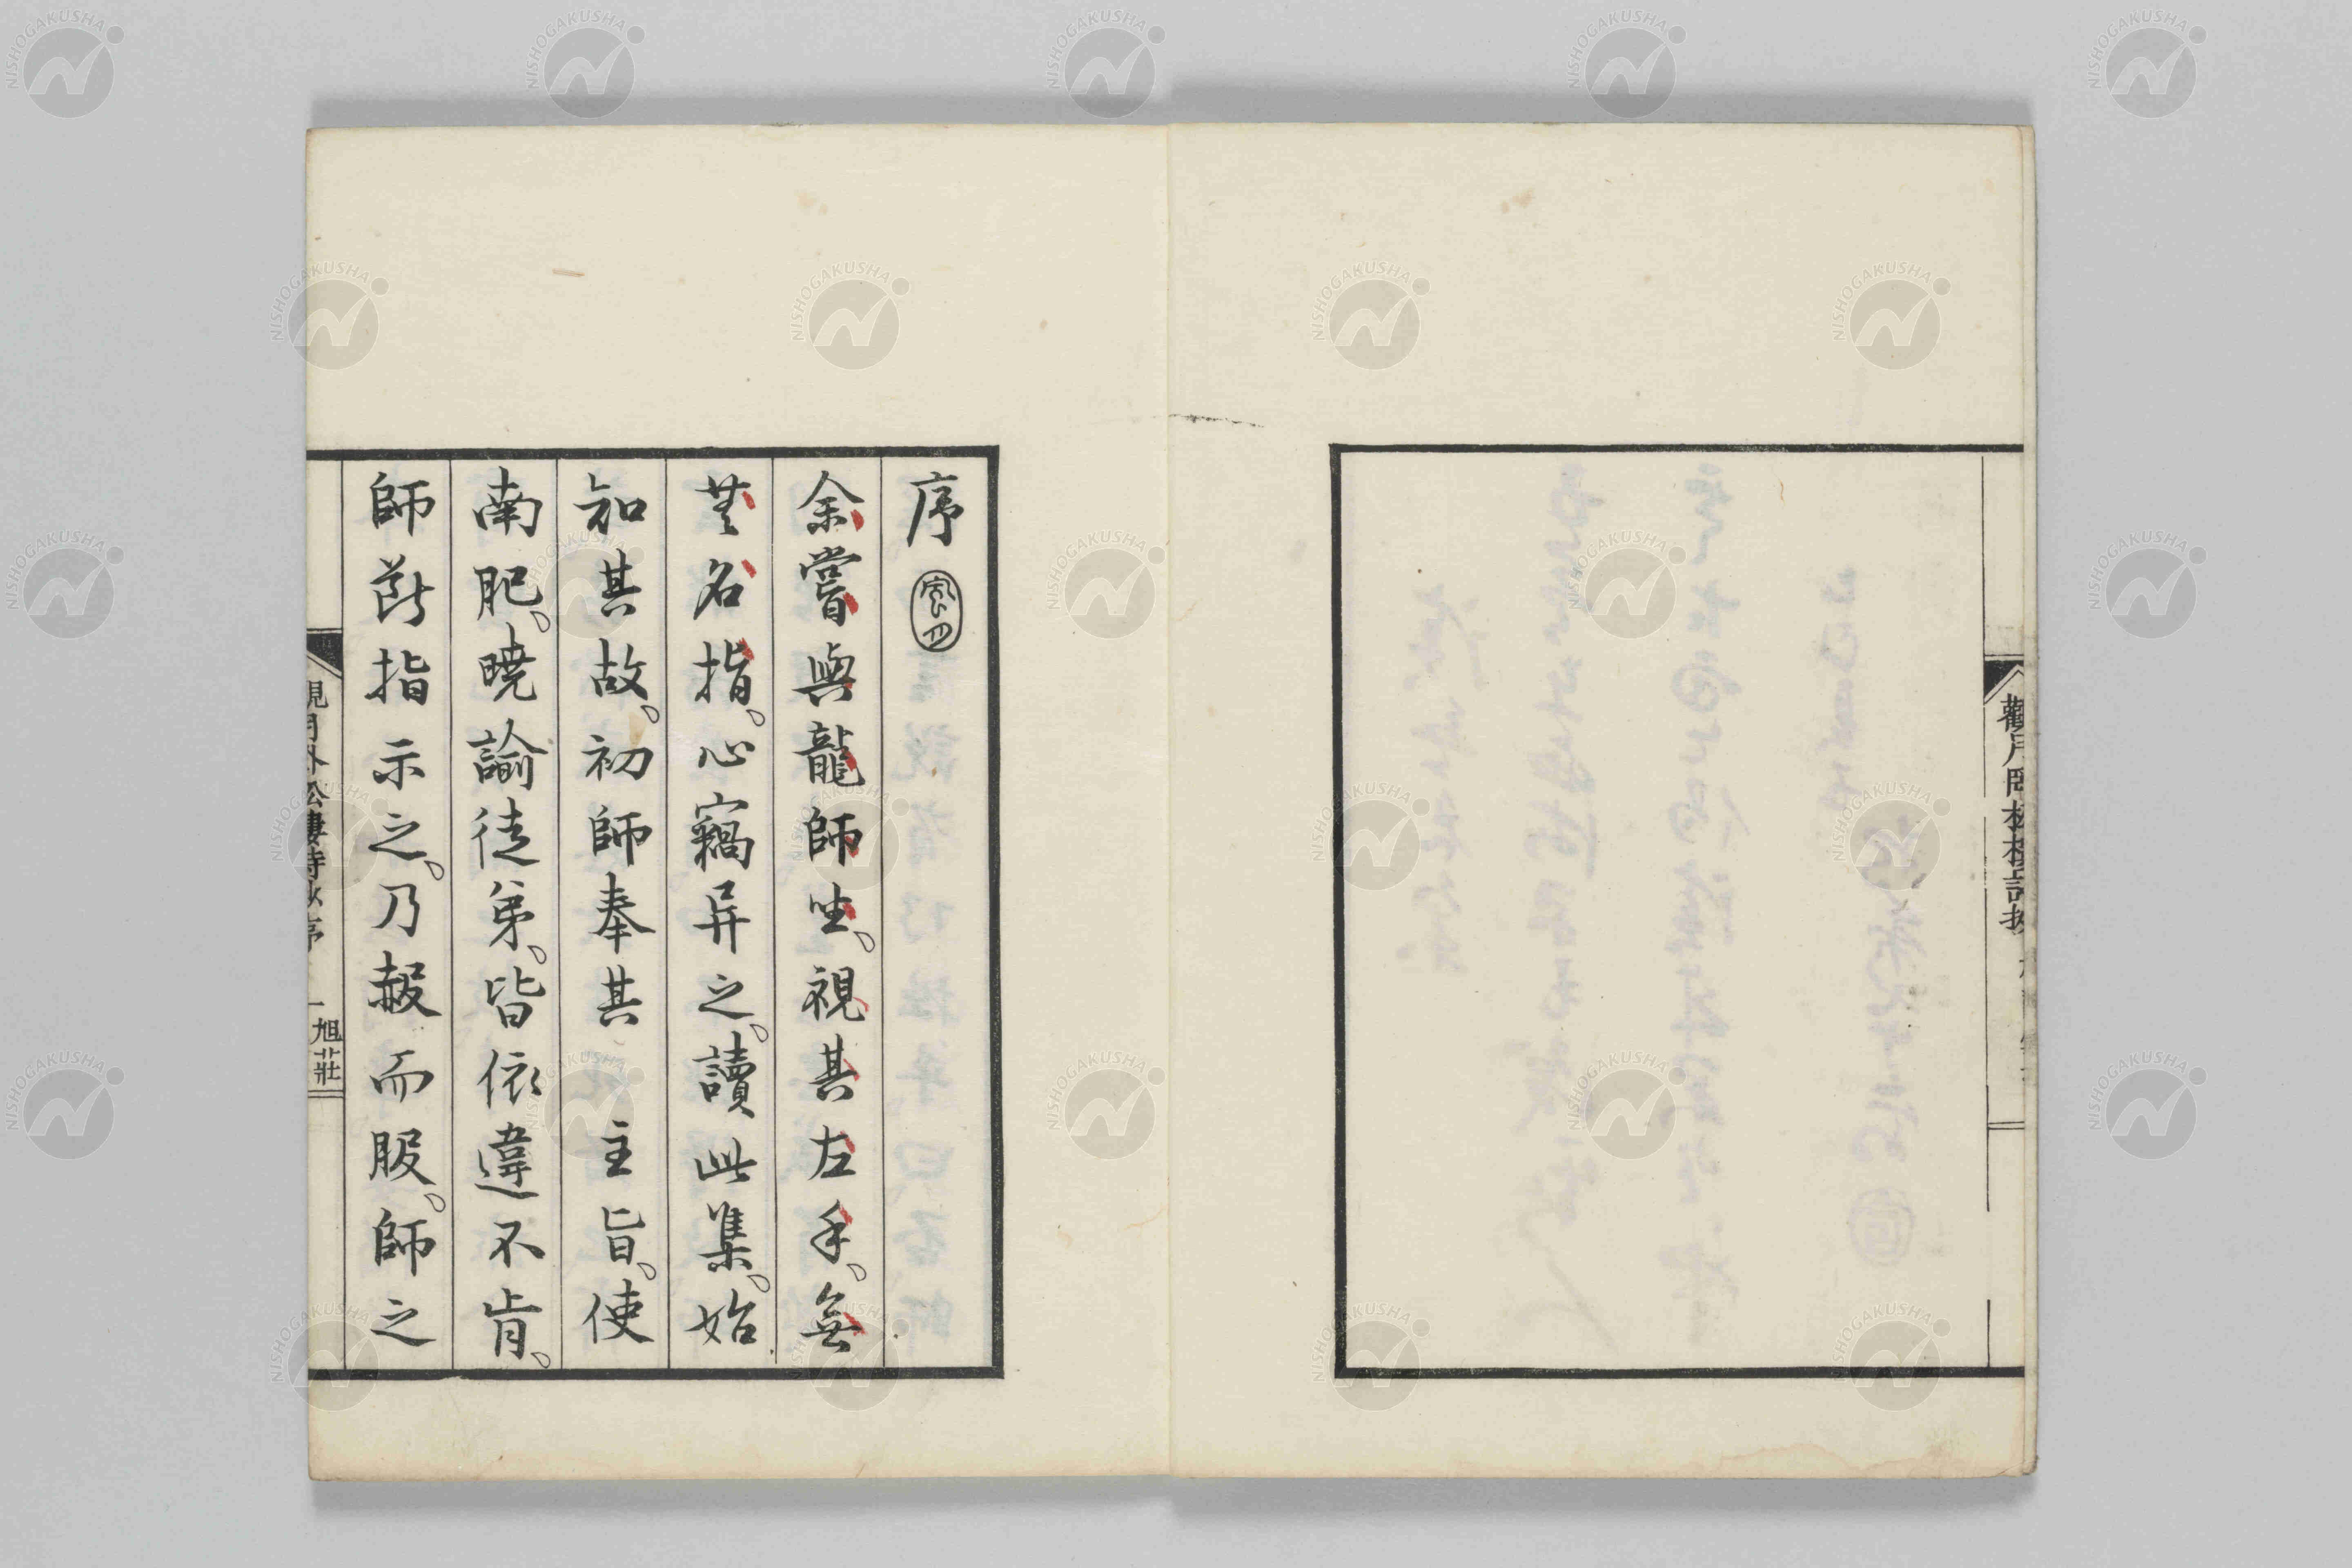 序
余嘗與龍師坐。視其左手。無
其名指。心竊異之。讀此集。始
知其故。初師奉其主旨。使
南肥。曉諭徒弟。皆依違不肯。
師斷指示之。乃赧而服。師之
旭莊